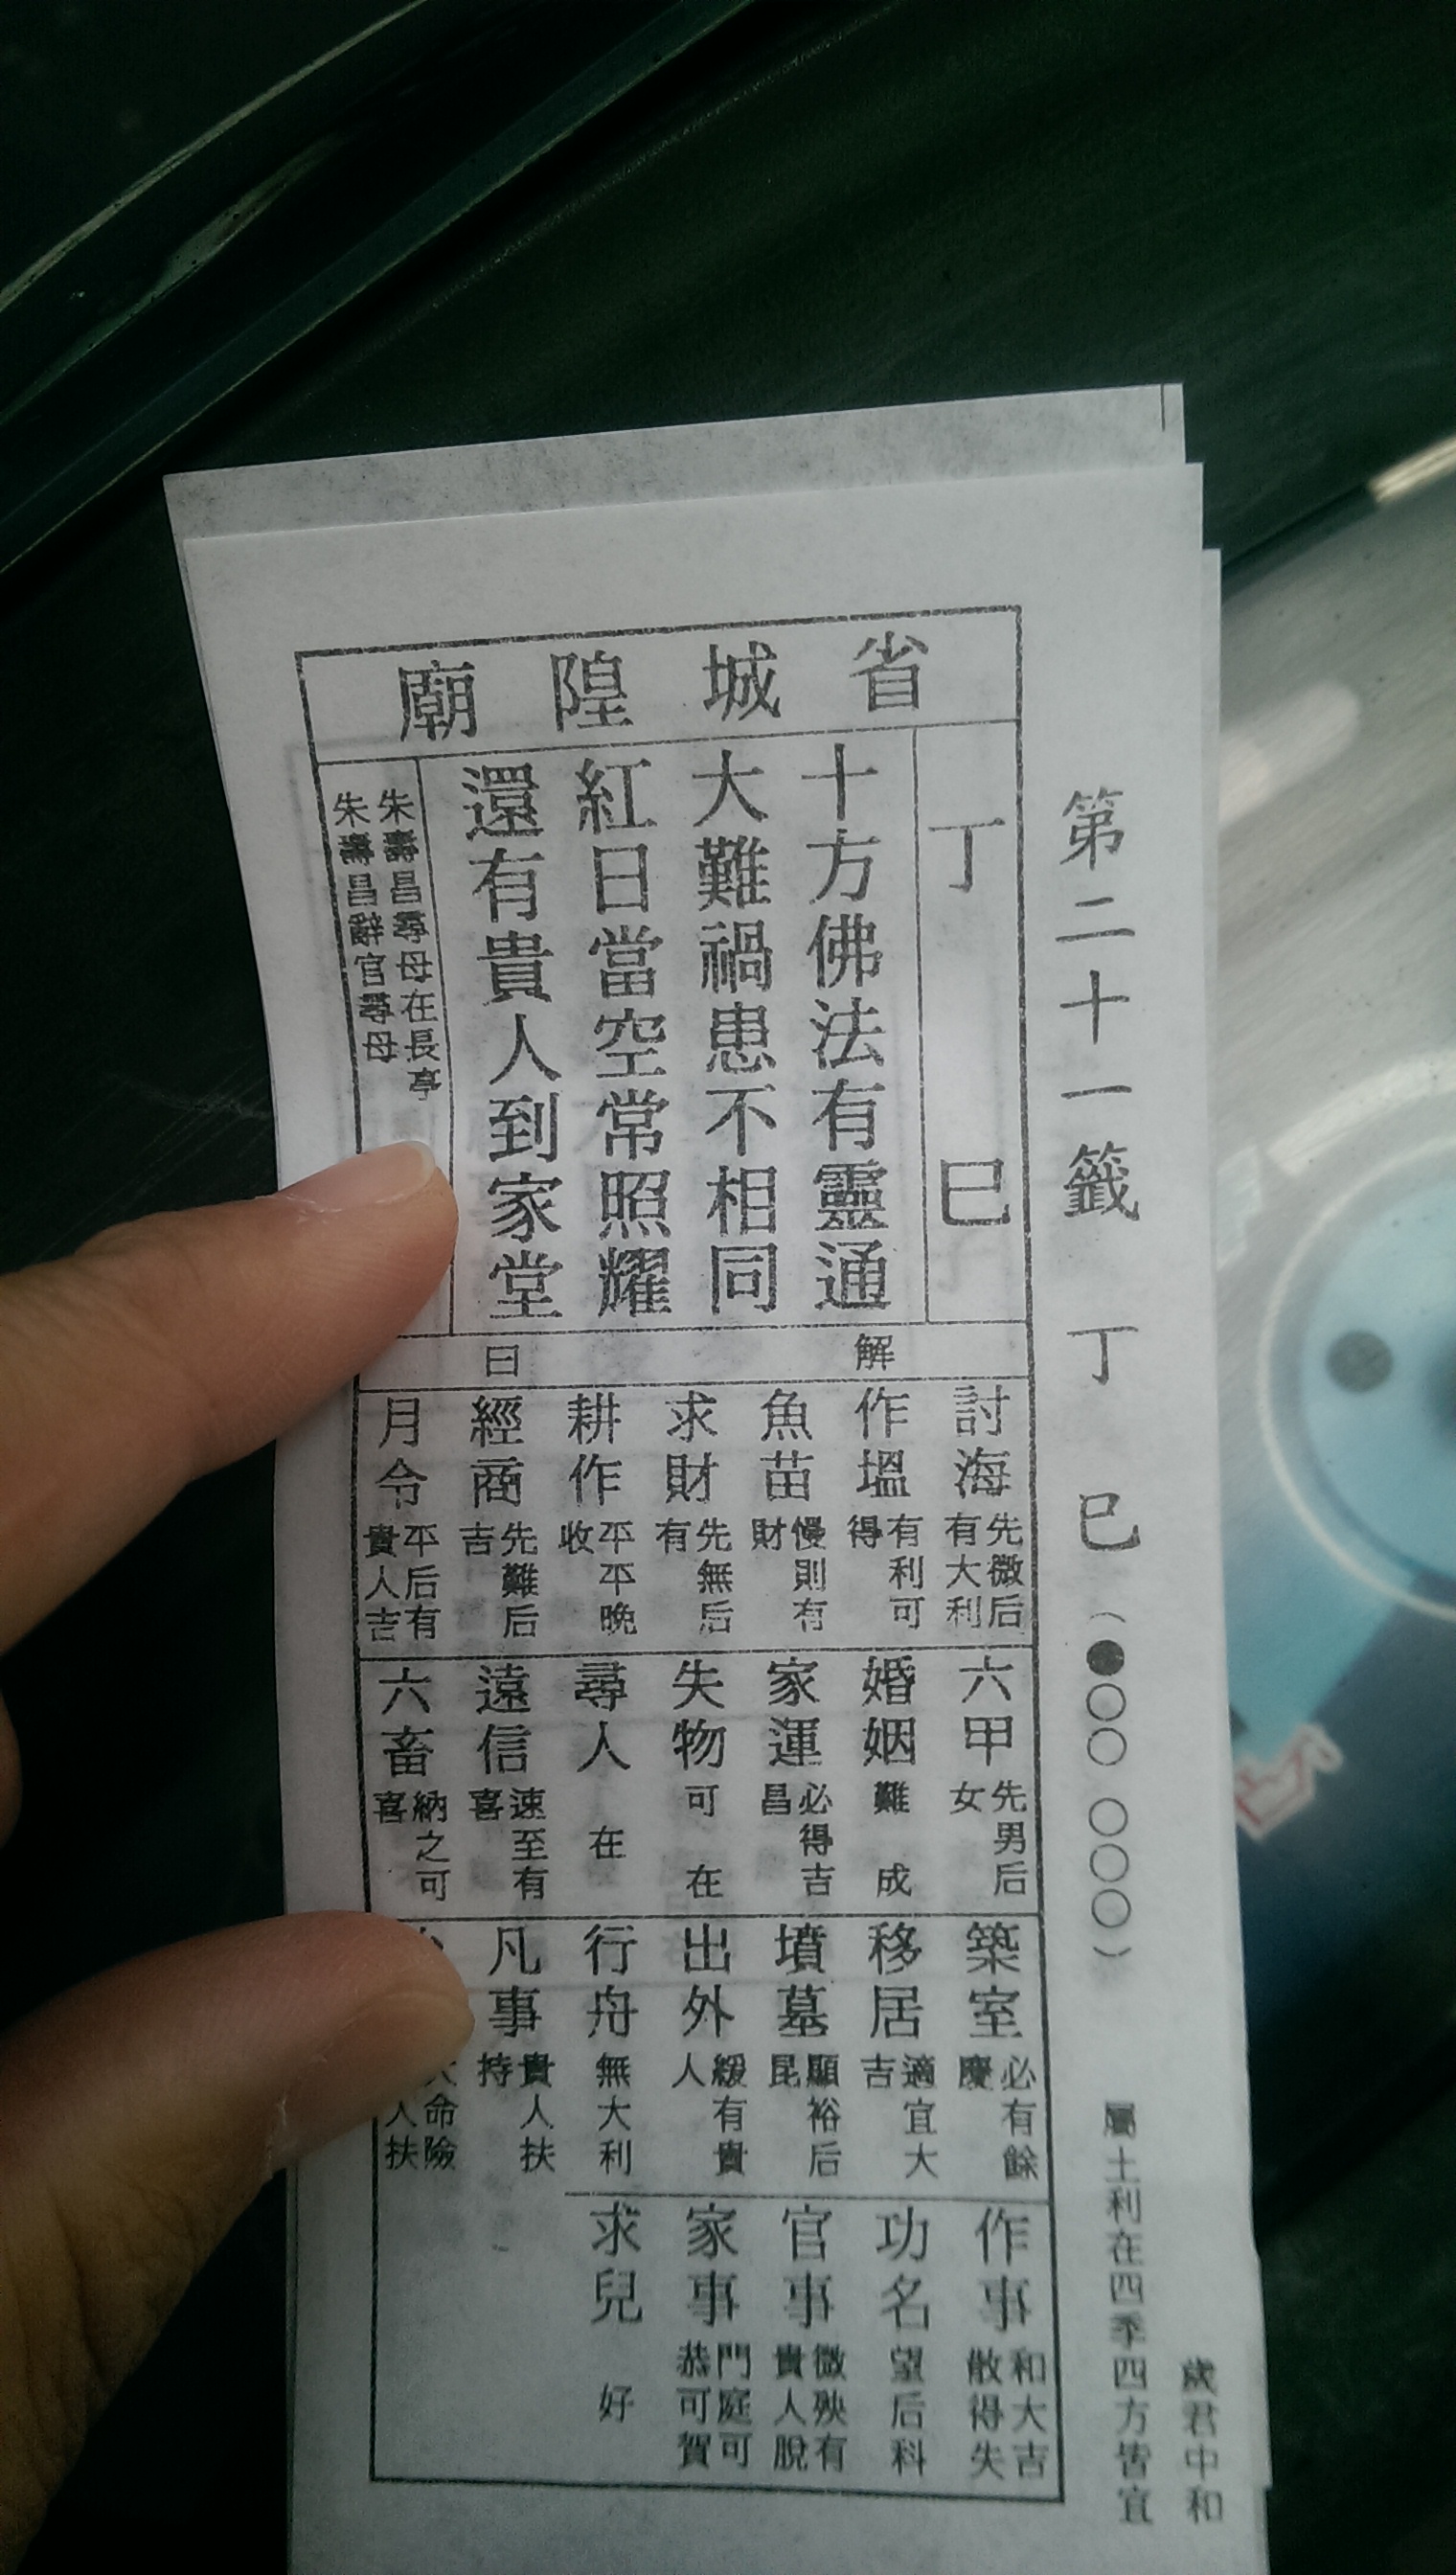 歲君中和
第二十一籤 丁巳 (●○○ ○○○) 屬土利在四季四方皆宜
省城隍廟
丁巳
十方佛法有靈通
大難禍患不相同
紅日當空常照耀
還有貴人到家堂
朱壽昌尋母在長亭
朱壽昌辭官尋母
解曰
討海 先微后有大利
作塭 有利可得
魚苗 慢則有財
求財 先無后有
耕作 平平晚收
經商 先難后吉
月令 平后有貴人吉
六甲 先男后女
婚姻 難成
家運 必得吉昌
失物 可在
尋人 在
遠信 速至有喜
六畜 納之可喜
築室 必有餘慶
移居 適宜大吉
墳墓 顯裕后昆
出外 緩有貴人
行舟 無大利
凡事 貴人扶持
命險
人扶
作事 和大吉散得失
功名 望后科
官事 微殃有貴人脫
家事 門庭可恭可賀
求兒 好